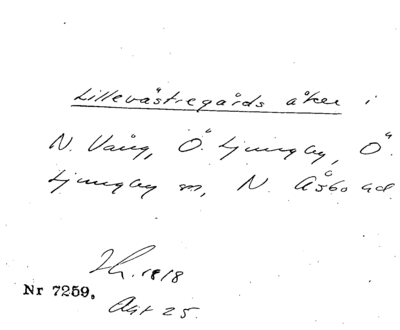 Lillevästregårds åker i
N. Vång, Ö. Ljungby, Ö.
Ljungby sn, N. Åsbo hd.
Sk. 1818
Nr 7259.
Akt 25.